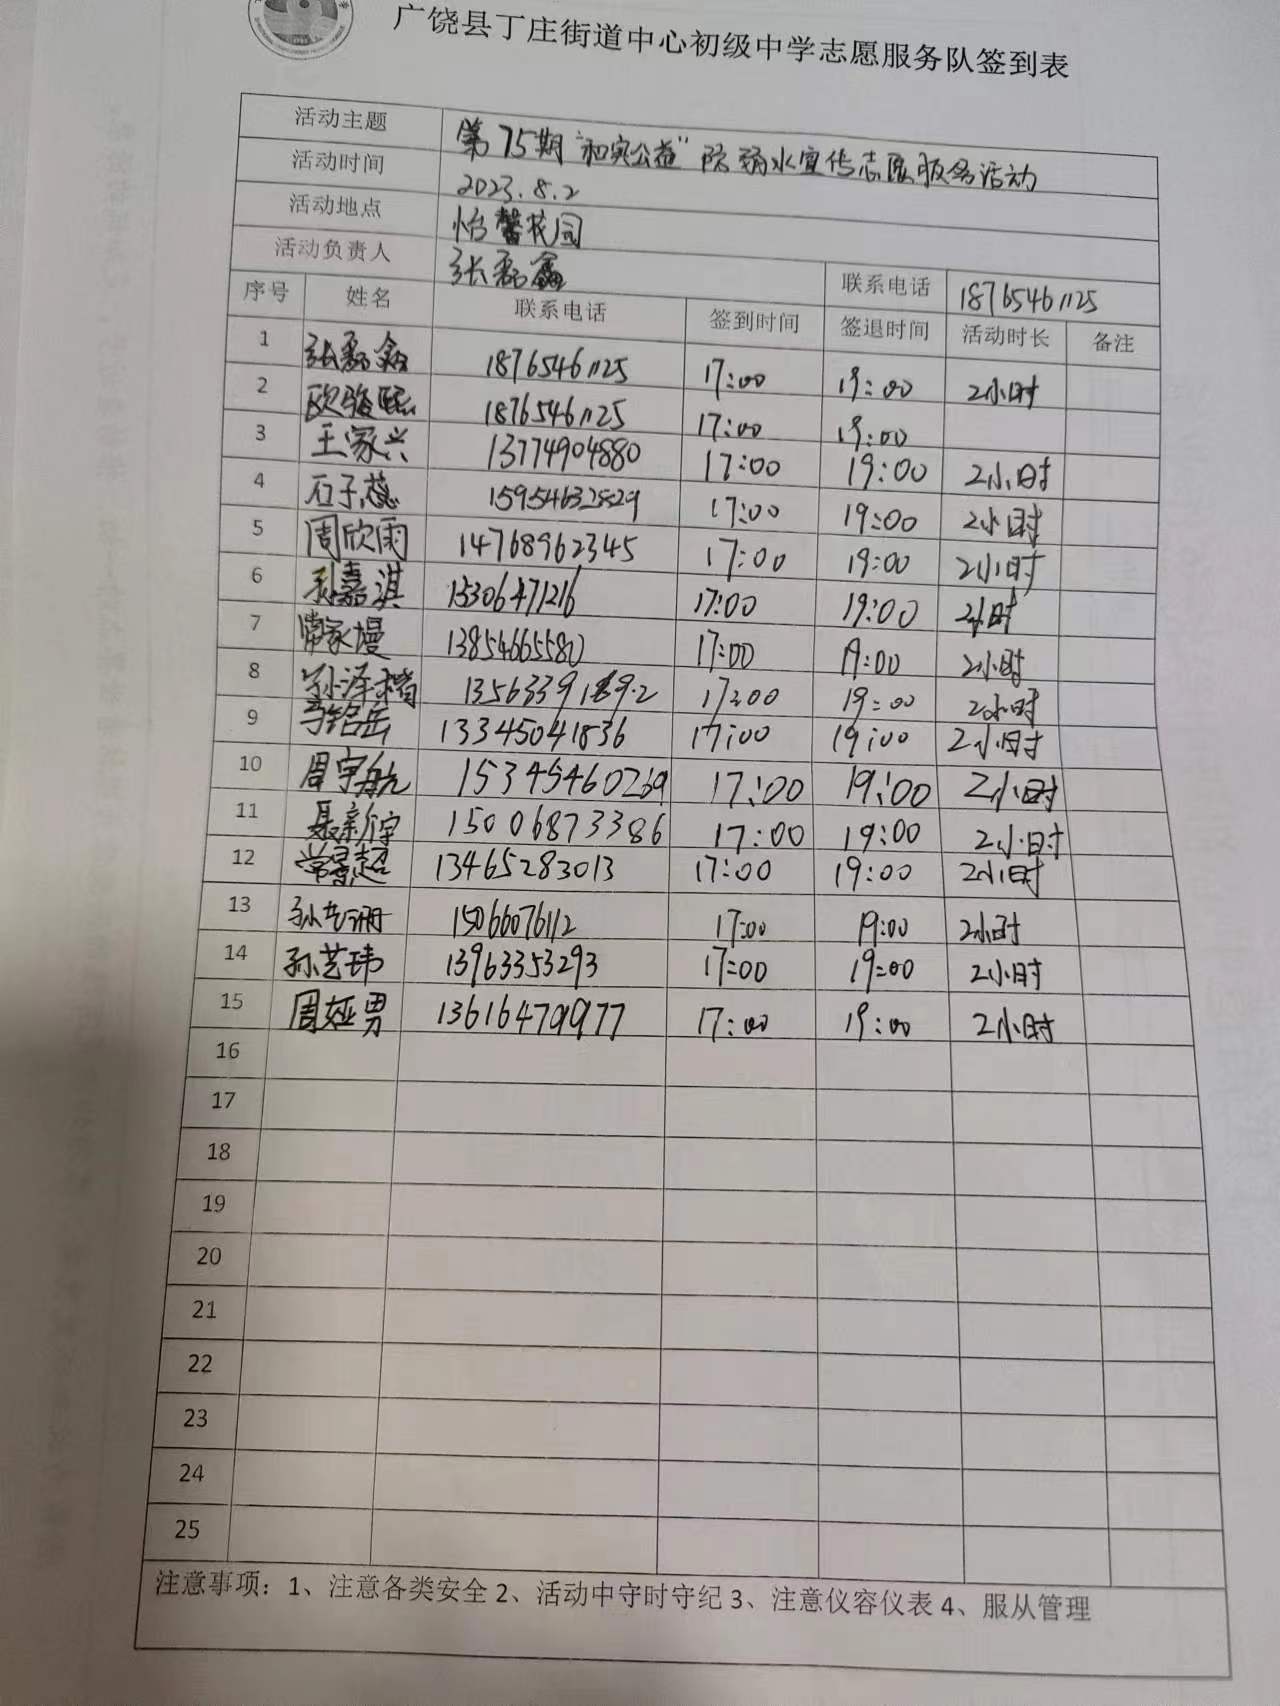 广饶县丁庄街道中心初级中学志愿服务队签到表
活动主题 第75期"和实公益"防溺水宣传志愿服务活动
活动时间 2023.8.2
活动地点 怡馨花园
活动负责人 张磊鑫 联系电话 18765461125
序号 姓名 联系电话 签到时间 签退时间 活动时长 备注
1 张磊鑫 18765461125 17:00 19:00 2小时
2 欧骏熙 18765461125 17:00 19:00
3 王家兴 13774904880 17:00 19:00 2小时
4 石子蕊 15954632829 17:00 19:00 2小时
5 周欣雨 14768962345 17:00 19:00 2小时
6 孙嘉淇 15306471216 17:00 19:00 2小时
7 常家墁 13854665580 17:00 19:00 2小时
8 孙泽楷 17:00 19:00 2小时
9 13345041836 17:00 19:00 2小时
10 周宇航 15345460239 17:00 19:00 2小时
11 聂新宇 15006873386 17:00 19:00 2小时
12 常景超 13465283013 17:00 19:00 2小时
13 孙艺珊 15066076112 17:00 19:00 2小时
14 孙艺玮 13963353293 17:00 19:00 2小时
15 周娅男 13616479977 17:00 19:00 2小时
16
17
18
19
20
21
22
23
24
25
注意事项：1、注意各类安全 2、活动中守时守纪 3、注意仪容仪表 4、服从管理